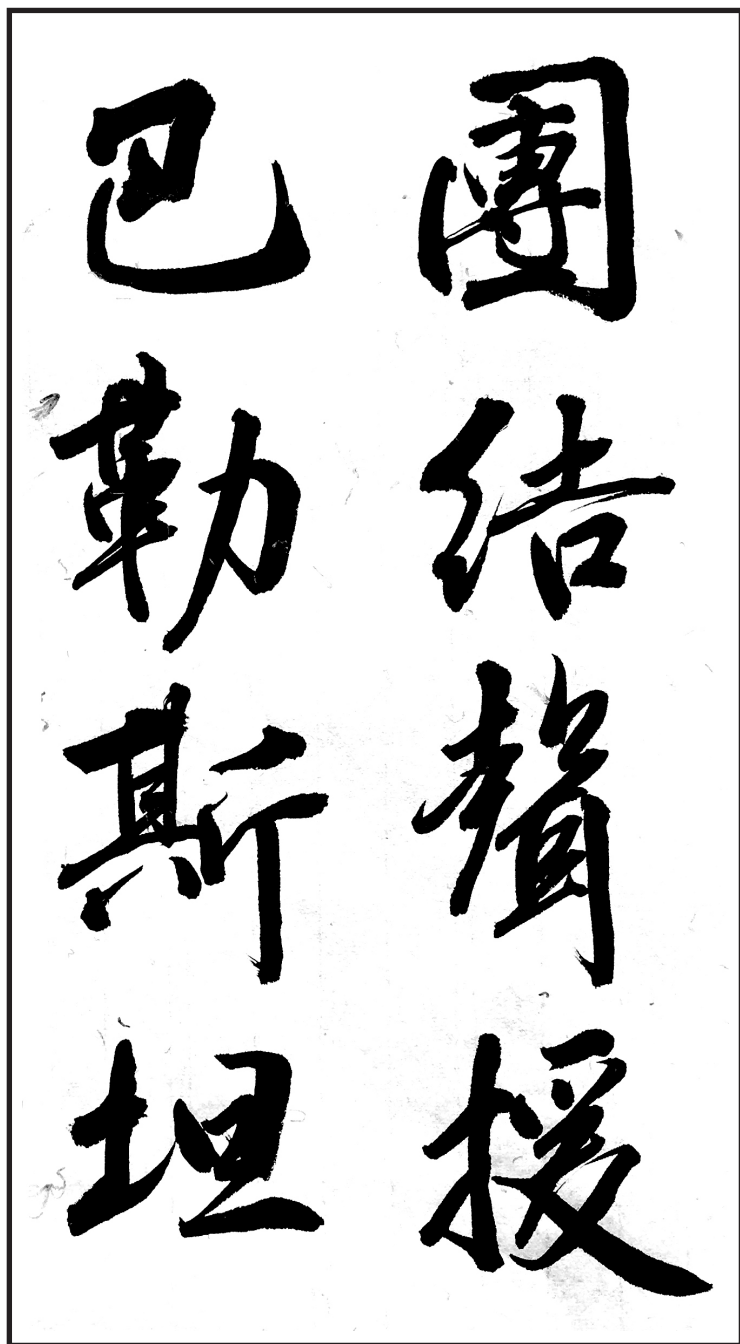 團结聲援
巴勒斯坦